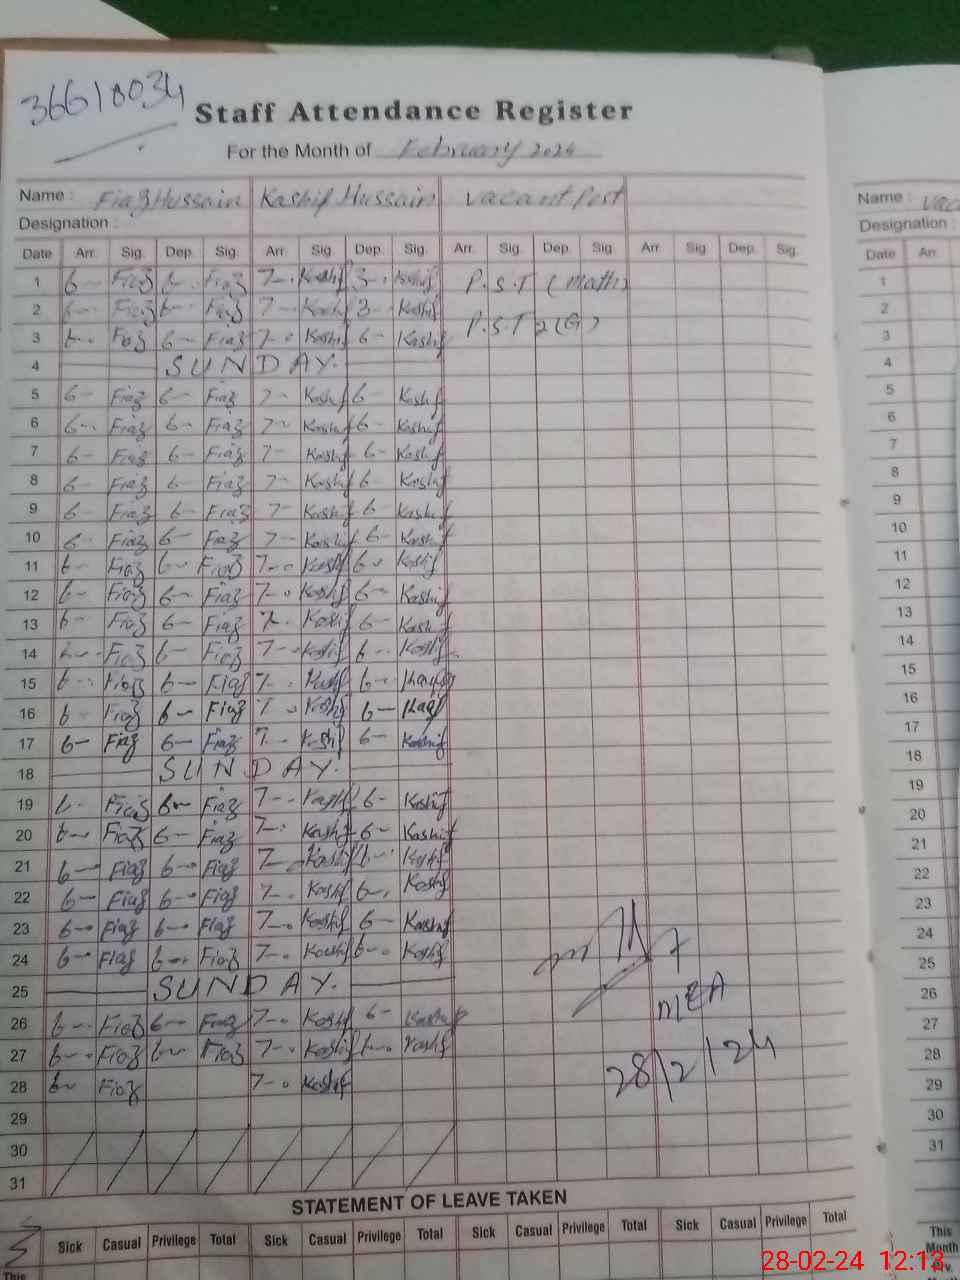 36610034
Staff Attendance Register
For the Month of February 2024
Name : Fiaz Hussain Kashif Hussain vacant Post
Designation :
Date Arr. Sig. Dep. Sig. Arr. Sig. Dep. Sig. Arr. Sig. Dep. Sig. Arr. Sig. Dep. Sig.
1 6 - Fiaz 6 - Fiaz 7 - Kashif 3 - Kashif P.S.T (math)
2 6 - Fiaz 6 - Fiaz 7 - Kashif 3 - Kashif
3 6 - Fiaz 6 - Fiaz 7 - Kashif 6 - Kashif P.S.T 2(G)
4 SUNDAY.
5 6 - Fiaz 6 - Fiaz 7 - Kashif 6 - Kashif
6 6 - Fiaz 6 - Fiaz 7 - Kashif 6 - Kashif
7 6 - Fiaz 6 - Fiaz 7 - Kashif 6 - Kashif
8 6 - Fiaz 6 - Fiaz 7 - Kashif 6 - Kashif
9 6 - Fiaz 6 - Fiaz 7 - Kashif 6 - Kashif
10 6 - Fiaz 6 - Fiaz 7 - Kashif 6 - Kashif
11 6 - Fiaz 6 - Fiaz 7 - Kashif 6 - Kashif
12 6 - Fiaz 6 - Fiaz 7 - Kashif 6 - Kashif
13 6 - Fiaz 6 - Fiaz 7 - Kashif 6 - Kashif
14 6 - Fiaz 6 - Fiaz 7 - Kashif 6 - Kashif
15 6 - Fiaz 6 - Fiaz 7 - Kashif 6 -
16 6 - Fiaz 6 - Fiaz 7 - Kashif 6 -
17 6 - Fiaz 6 - Fiaz 7 - Kashif 6 - Kashif
18 SUNDAY.
19 6 - Fiaz 6 - Fiaz 7 - Kashif 6 - Kashif
20 6 - Fiaz 6 - Fiaz 7 - Kashif 6 - Kashif
21 6 - Fiaz 6 - Fiaz 7 - Kashif 6 - Kashif
22 6 - Fiaz 6 - Fiaz 7 - Kashif 6 - Kashif
23 6 - Fiaz 6 - Fiaz 7 - Kashif 6 - Kashif
24 6 - Fiaz 6 - Fiaz 7 - Kashif 6 - Kashif
25 SUNDAY.
26 6 - Fiaz 6 - Fiaz 7 - Kashif 6 - Kashif
27 6 - Fiaz 6 - Fiaz 7 - Kashif 6 - Kashif
28 6 - Fiaz 7 - Kashif
29
30
31
MEA
28/2/24
STATEMENT OF LEAVE TAKEN
Sick Casual Privilege Total Sick Casual Privilege Total Sick Casual Privilege Total Sick Casual Privilege Total
This
Name :
Designation :
Date Arr.
1
2
3
4
5
6
7
8
9
10
11
12
13
14
15
16
17
18
19
20
21
22
23
24
25
26
27
28
29
30
31
This
Month
Prv.
28-02-24 12:13